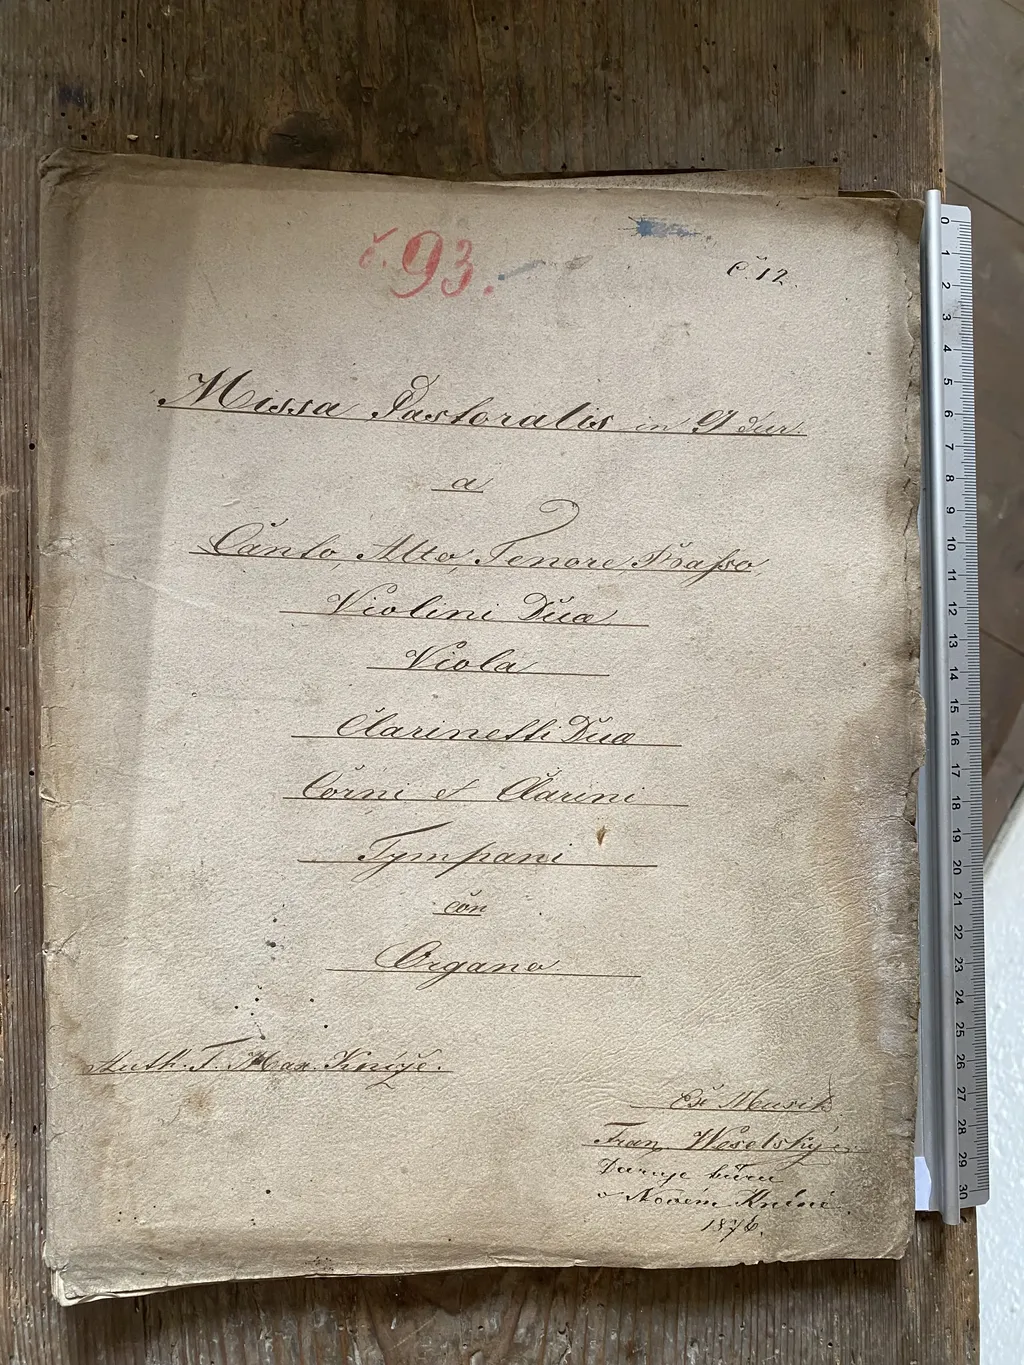 č. 93.
č. 12.
Missa Pastoralis in G dur
a
Canto, Alto, Tenore, Basso
Violini Duo
Viola
Clarinetti Duo
Corni et Clarini
Tympani
con
Organo
Auth. F. Max. Kníže.
Franz Weselský
Daruje kůru
v Novém Kníně
1876.
0 1 2 3 4 5 6 7 8 9 10 11 12 13 14 15 16 17 18 19 20 21 22 23 24 25 26 27 28 29 30